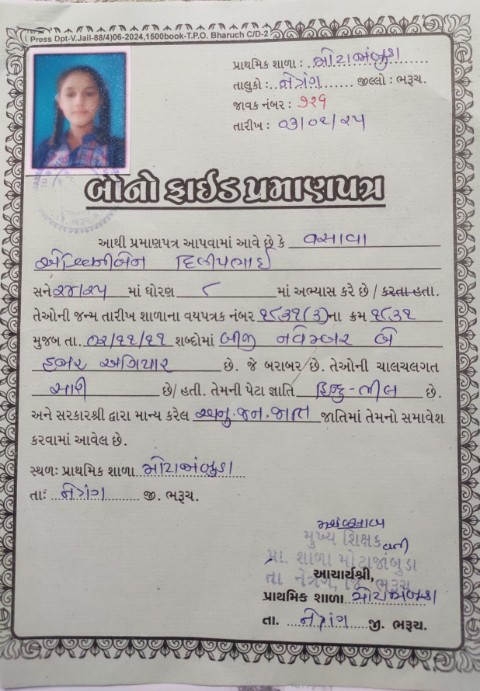 ( Press Dpt-V.Jail-88/4)06-2024,1500book-T.P.O. Bharuch C/D-2
પ્રાથમિક શાળા : મોટાજાંબુડા
તાલુકો : નેત્રંગ જીલ્લો : ભરૂચ.
જાવક નંબર : ૭૨૧
તારીખ : ૦૩/૦૨/૨૫
બોનો ફાઈડ પ્રમાણપત્ર
આથી પ્રમાણપત્ર આપવામાં આવે છે કે વસાવા
દિલીપભાઇ
સને ૨૪/૨૫ માં ધોરણ ૮ માં અભ્યાસ કરે છે / કરતા હતા.
તેઓની જન્મ તારીખ શાળાના વયપત્રક નંબર ૧૮૩૧(૩)ના ક્રમ ૧૮૩૧
મુજબ તા. ૦૨/૧૧/૧૧ શબ્દોમાં બીજી નવેમ્બર બે
હજાર અગિયાર છે. જે બરાબર છે. તેઓની ચાલચલગત
સારી છે/ હતી. તેમની પેટા જ્ઞાતિ હિન્દુ-ભીલ છે.
અને સરકારશ્રી દ્વારા માન્ય કરેલ અનુ.જન.જાતિ જાતિમાં તેમનો સમાવેશ
કરવામાં આવેલ છે.
સ્થળ: પ્રાથમિક શાળા મોટાજાંબુડા
તા: નેત્રંગ જી. ભરૂચ.
મુખ્ય શિક્ષક
પ્રા. શાળા મોટાજાંબુડા
તા નેત્રંગ, જિ. ભરૂચ
આચાર્યશ્રી,
પ્રાથમિક શાળા મોટાજાંબુડા
તા. નેત્રંગ જી. ભરૂચ.